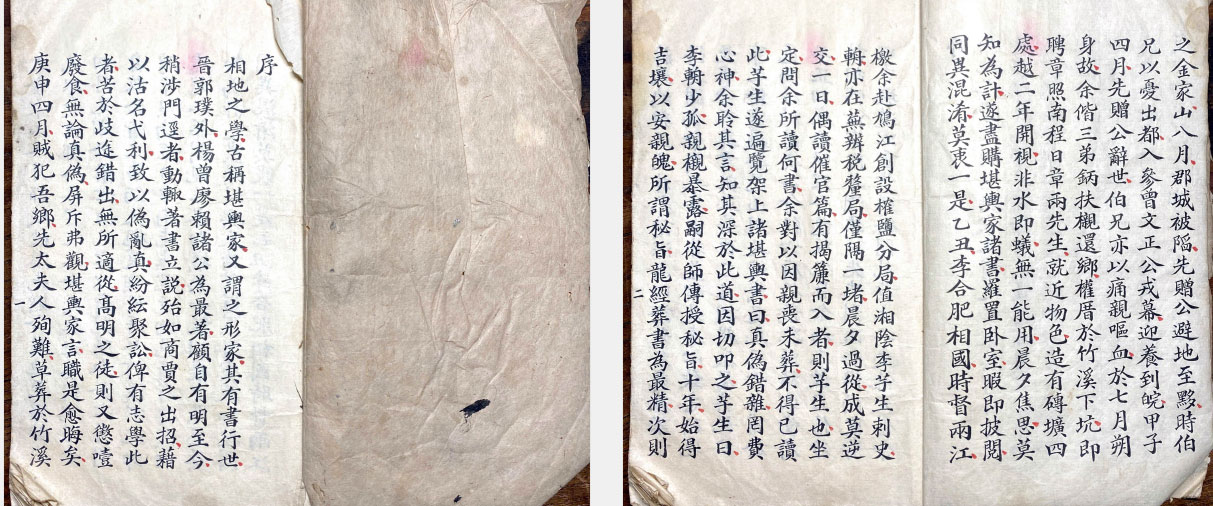 序
相地之學古稱堪輿家又謂之形家其有書行世
晉郭璞外楊曾廖賴諸公為最著顧自有明至今
稍涉門逕者動輙著書立説殆如商賈之出招藉
以沽名弋利致以偽亂真紛紜聚訟俾有志學此
者苦於歧途錯出無所適從髙明之徒則又懲噎
廢食無論真偽屏斥弗觀堪輿家言職是愈晦矣
庚申四月賊犯吾鄉先太夫人殉難草葬於竹溪
一
之金家山八月郡城被陷先贈公避地至黟時伯
兄以憂出都入參曾文正公戎幕迎養到皖甲子
四月先贈公辭世伯兄亦以痛親嘔血於七月朔
身故余偕三弟鈵扶櫬還鄉權厝於竹溪下坑即
聘章照南程日章兩先生就近物色造有磚壙四
處越二年開視非水即蟻無一能用晨夕焦思莫
知為計遂盡購堪輿家諸書羅置卧室暇即披閲
同異混淆莫衷一是乙丑李合肥相國時督兩江
檄余赴鳩江創設榷鹽分局值湘陰李芋生刺史
輈亦在蕪辨税釐局僅隔一堵晨夕過從成莫逆
交一日偶讀催官篇有揭簾而入者則芋生也坐
定問余所讀何書余對以因親喪未葬不得已讀
此芋生遂遍覽架上諸堪輿書曰真偽錯雜罔費
心神余聆其言知其深於此道因切叩之芋生曰
李輈少孤親櫬暴露嗣從師傳授秘旨十年始得
吉壤以安親魄所謂秘旨龍經葬書為最精次則
二